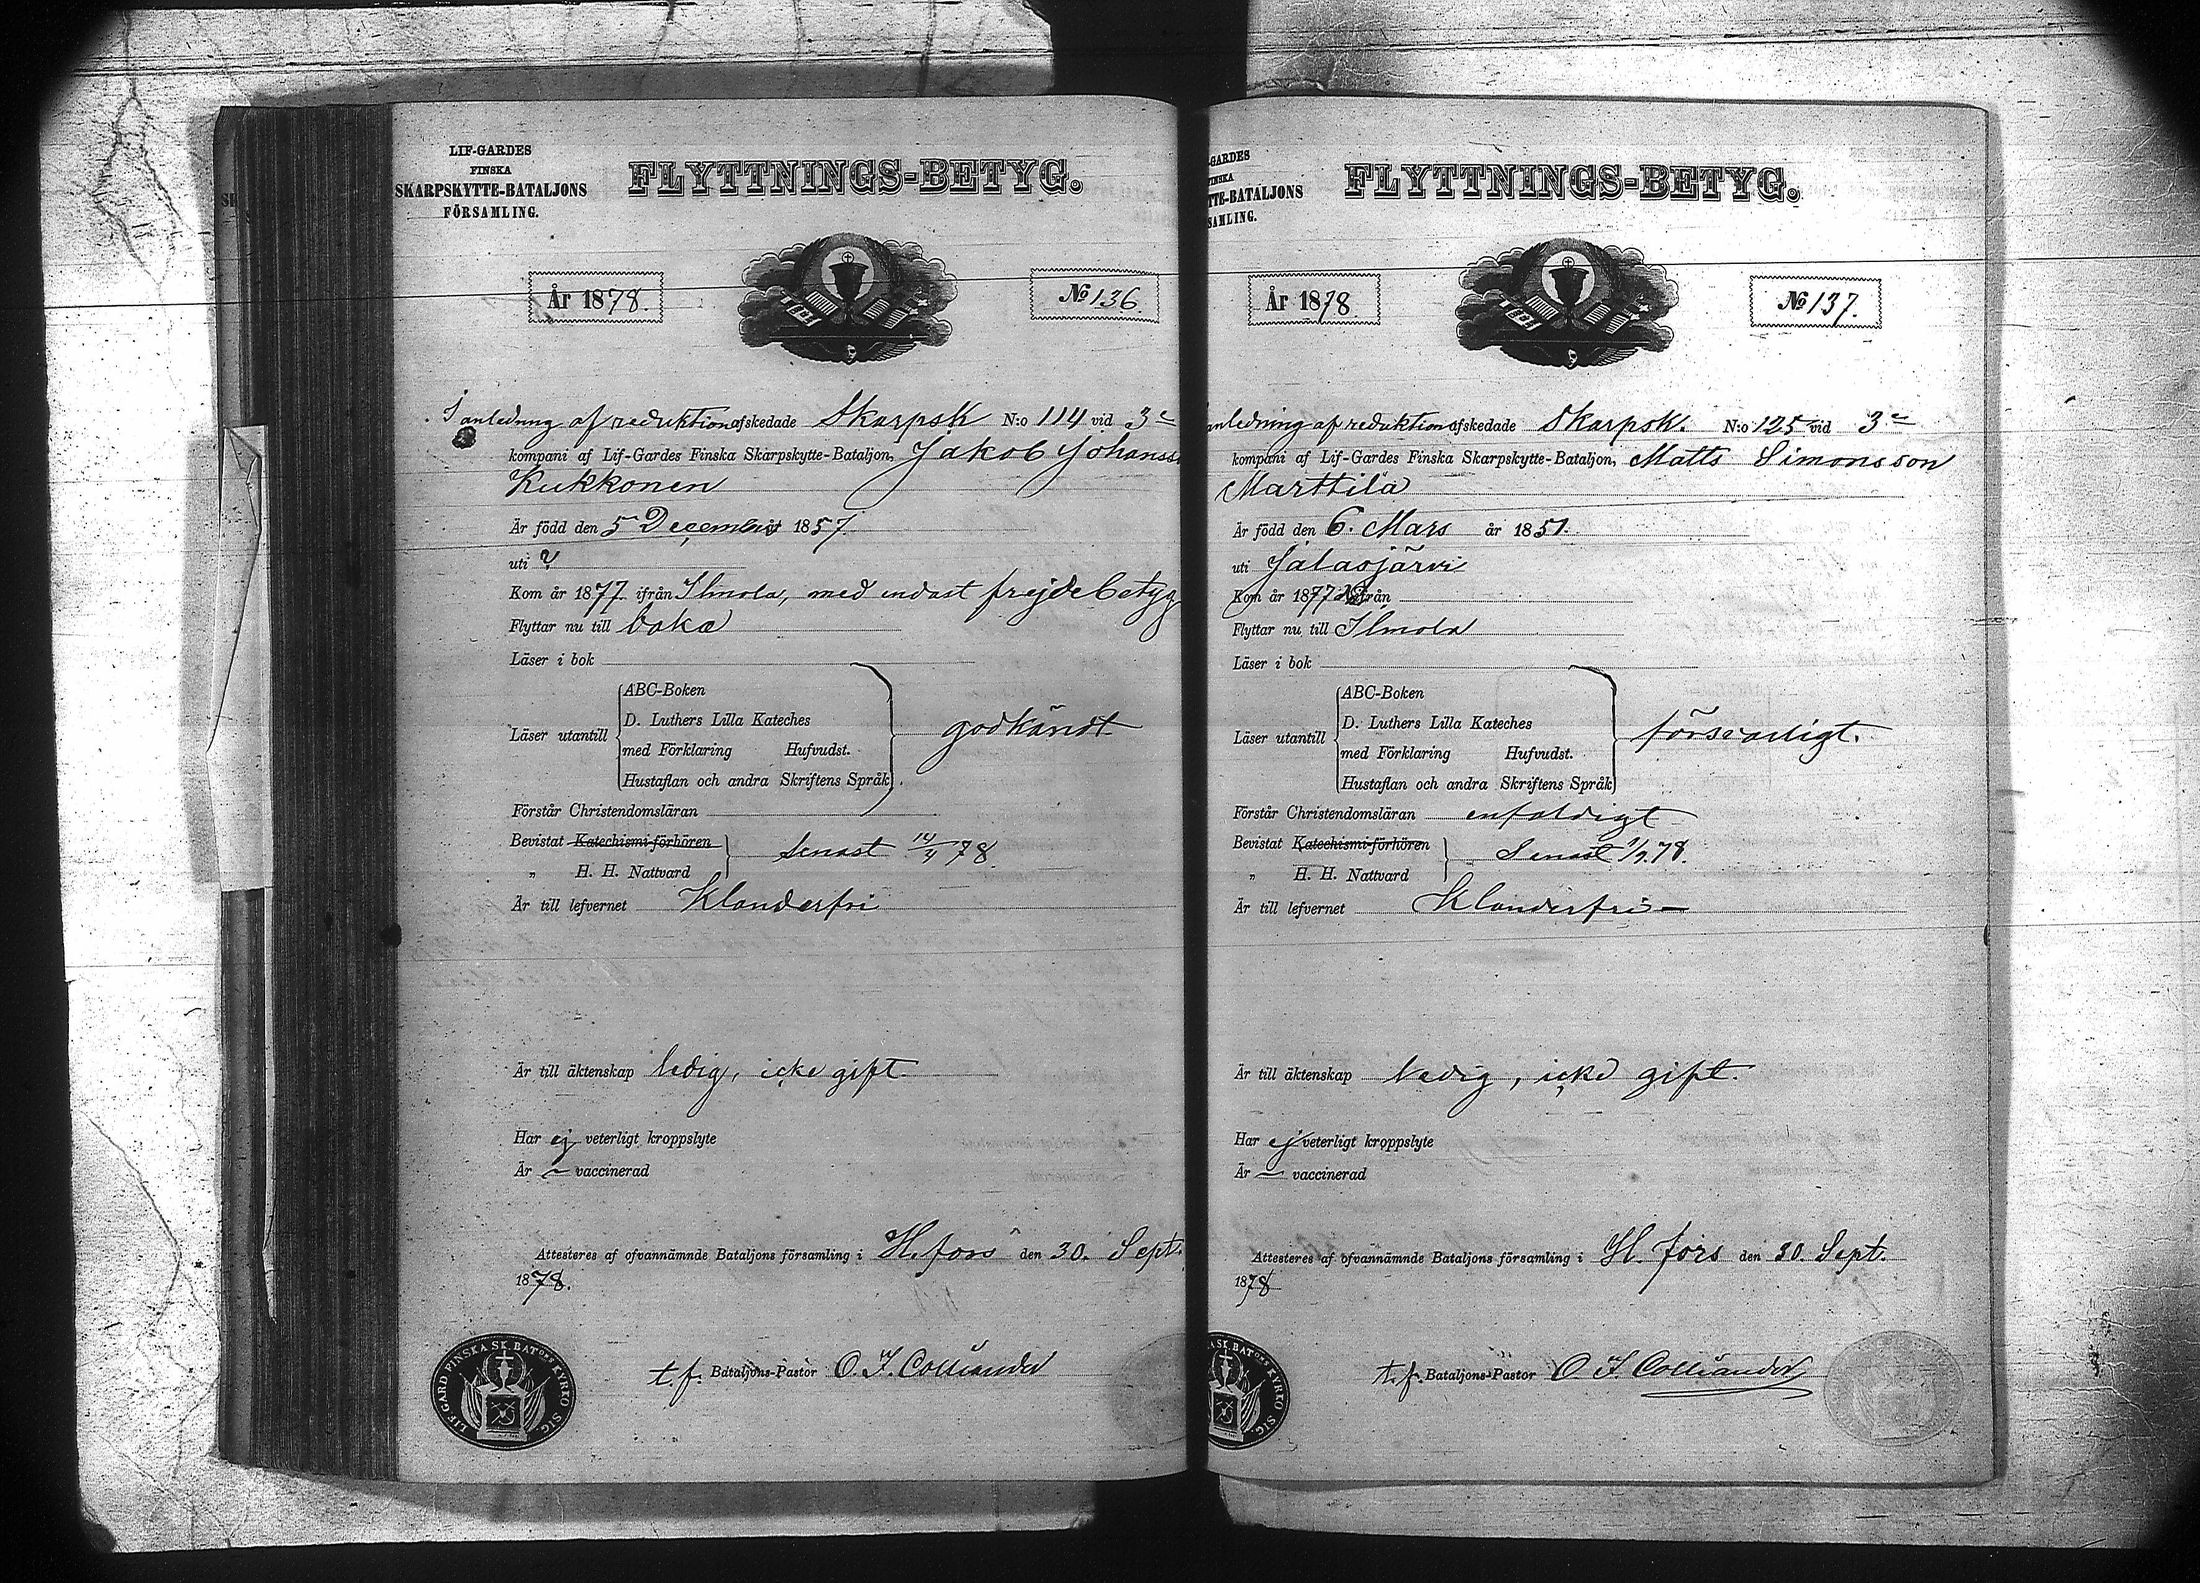 LIF-GARDES
FINSKA
SKARPSKYTTE-BATALJONS
FÖRSAMLING.
FLYTTNINGS-BETYG.
År 1878.
No 136.
I anledning af reduktion afskedade Skarpsk N:o 114 vid 3e
kompani af Lif-Gardes Finska Skarpskytte-Bataljon, Jakob Johanss
Kukkonen
Är född den 5 December 1857.
uti ?
Kom år 1877 ifrån Ilmola, med endast frejdebetyg
Flyttar nu till
Läser i bok
Läser utantill
ABC-Boken
D. Luthers Lilla Kateches
med Förklaring Hufvudst.
Hustaflan och andra Skriftens Språk
godkändt
Förstår Christendomsläran
Bevistat Katechismi-förhören
„ H. H. Nattvard
Senast 14/4 78.
Är till lefvernet Klanderfri
Är till äktenskap ledig, icke gift
Har ej veterligt kroppslyte
Är — vaccinerad
Attesteres af ofvannämnde Bataljons församling i H.fors den 30. Sept.
1878.
LIF-GARD FINSKA SK. BATONS KYRKO SIG.
t.f. Bataljons-Pastor O. I. Colliander
-GARDES
INSKA
TTE-BATALJONS
SAMLING.
FLYTTNINGS-BETYG.
År 1878
No 137.
anledning af reduktion afskedade Skarpsk. N:o 125 vid 3e
kompani af Lif-Gardes Finska Skarpskytte-Bataljon, Matts Simonsson
Marttila
Är född den 6. Mars år 1851.
uti Jalasjärvi
Kom år 1877 ifrån
Flyttar nu till Ilmola
Läser i bok
Läser utantill
ABC-Boken
D. Luthers Lilla Kateches
med Förklaring Hufvudst.
Hustaflan och andra Skriftens Språk
försvarligt.
Förstår Christendomsläran enfaldigt
Bevistat Katechismi-förhören
„ H. H. Nattvard
Senast 1/9 78.
Är till lefvernet Klanderfri —
Är till äktenskap ledig, icke gift.
Har ej veterligt kroppslyte
Är — vaccinerad
Attesteres af ofvannämnde Bataljons församling i H.fors den 30. Sept.
1878
SKA SK. BATONS KYRKO SIG.
t.f. Bataljons-Pastor O. I. Colliander